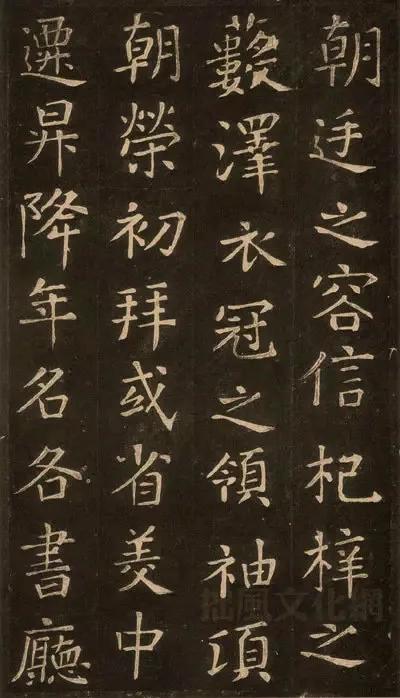 朝廷之容信杞梓之
藪澤衣冠之領袖項
朝榮初拜或省美中
遷昇降年名各書廳
拙風文化網